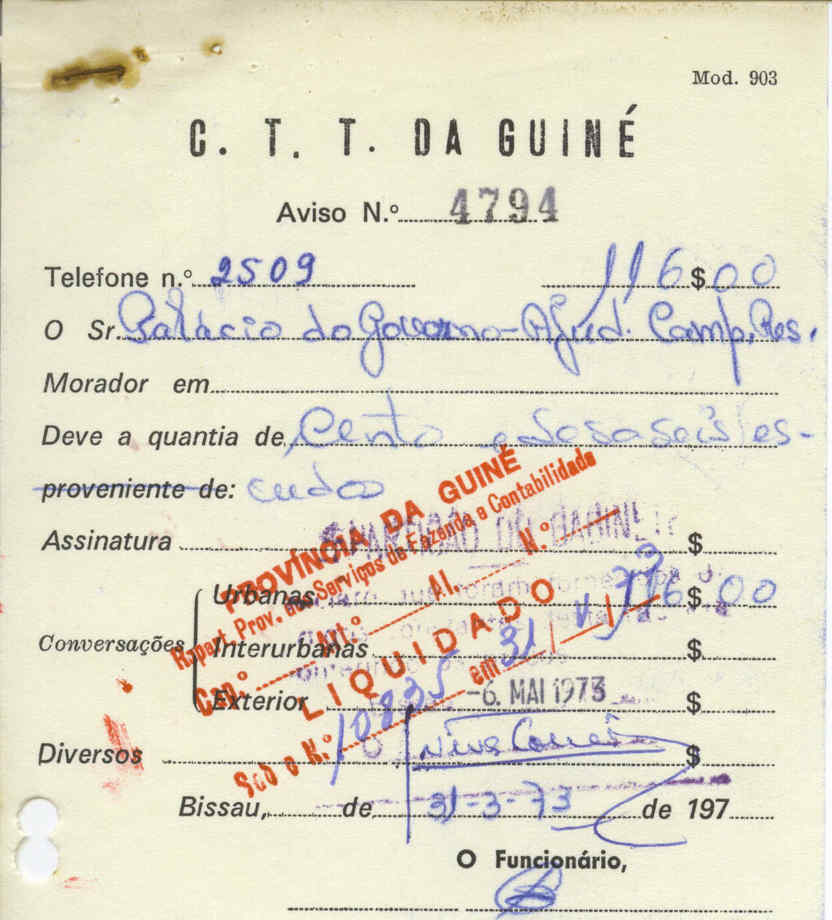 Mod. 903
C. T. T. DA GUINÉ
Aviso N.º 4794
Telefone n.º 2509 116$00
O Sr. Palácio do Governo - Ajud. Camp. Res.
Morador em
Deve a quantia de Cento e es-
proveniente de: cudos
Assinatura $
PROVÍNCIA DA GUINÉ
Repart. Prov. dos Serviços de Fazenda e Contabilidade
Cap.º Art.º Al. N.º
LIQUIDADO
Sob o N.º 10835 em 31/V/73
Conversações
Urbanas 116$00
Interurbanas $
Exterior $
-6. MAI 1973
Diversos $
Bissau, de 31-3-73 de 197
O Funcionário,